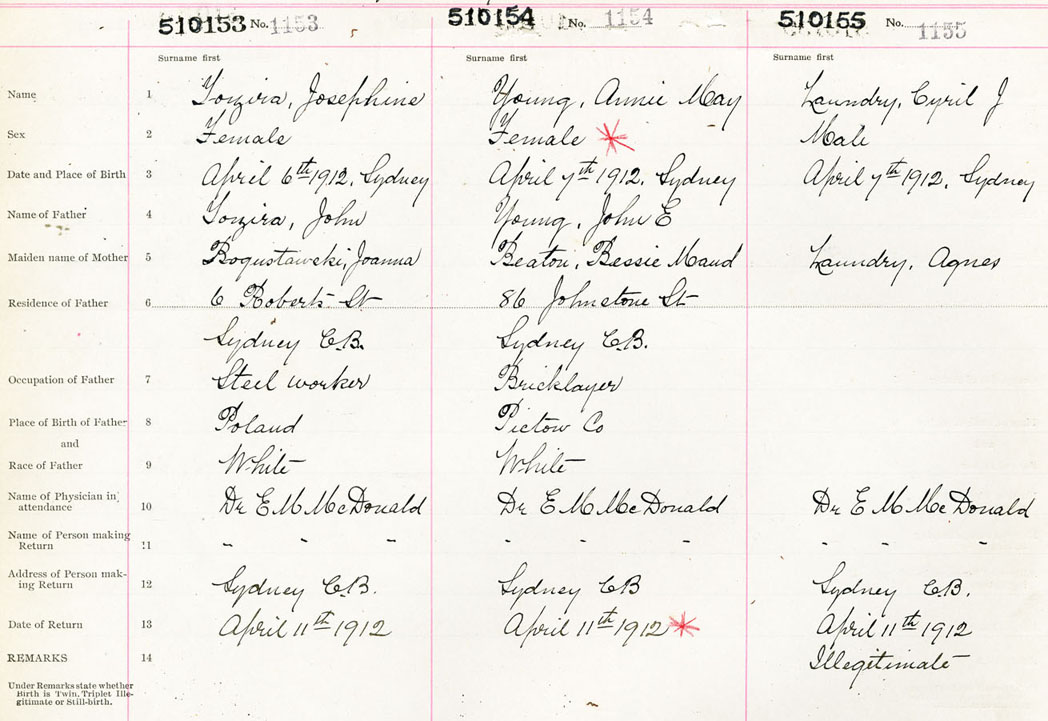 510153 No. 1153 510154 No. 1154 510155 No. 1155
Surname first Surname first Surname first
Name 1 Yorzira, Josephine Young, Annie May Laundry, Cyril J
Sex 2 Female Female Male
Date and Place of Birth 3 April 6th 1912, Sydney April 7th 1912, Sydney April 7th 1912, Sydney
Name of Father 4 Yorzira, John Young, John E
Maiden name of Mother 5 Bogustawski, Joanna Beaton, Bessie Maud Laundry, Agnes
Residence of Father 6 6 Roberts St 86 Johnstone St
Sydney C.B. Sydney C.B.
Occupation of Father 7 Steel worker Bricklayer
Place of Birth of Father 8 Poland Pictow Co
and
Race of Father 9 White White
Name of Physician in attendance 10 Dr E M McDonald Dr E M McDonald Dr E M McDonald
Name of Person making Return 11 " " " " " " " " "
Address of Person making Return 12 Sydney C.B. Sydney CB Sydney C.B.
Date of Return 13 April 11th 1912 April 11th 1912 April 11th 1912
REMARKS 14 Illegitimate
Under Remarks state whether
Birth is Twin, Triplet Ille-
gitimate or Still-birth.